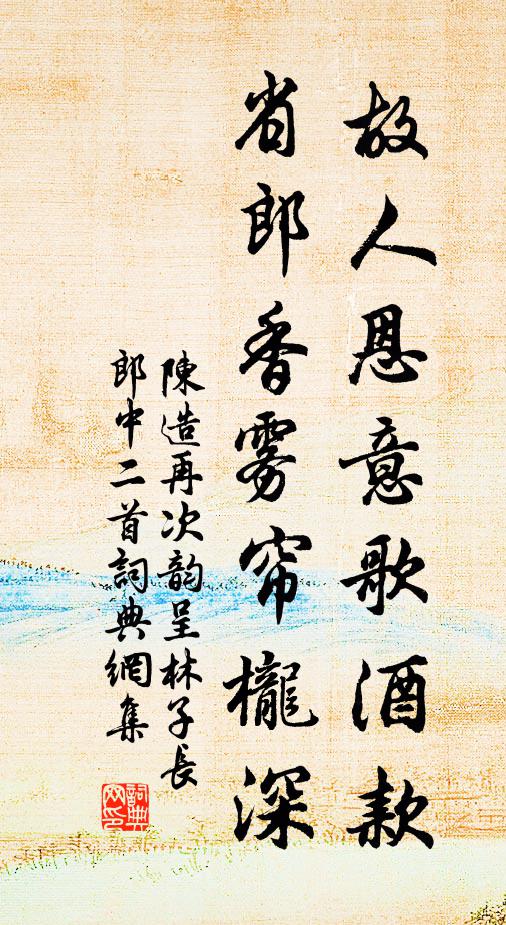 故人恩意歌酒款
省郎香雾帘櫳深
陳造再次韵呈林子長
郎中二首詞典網集
詞典
网印